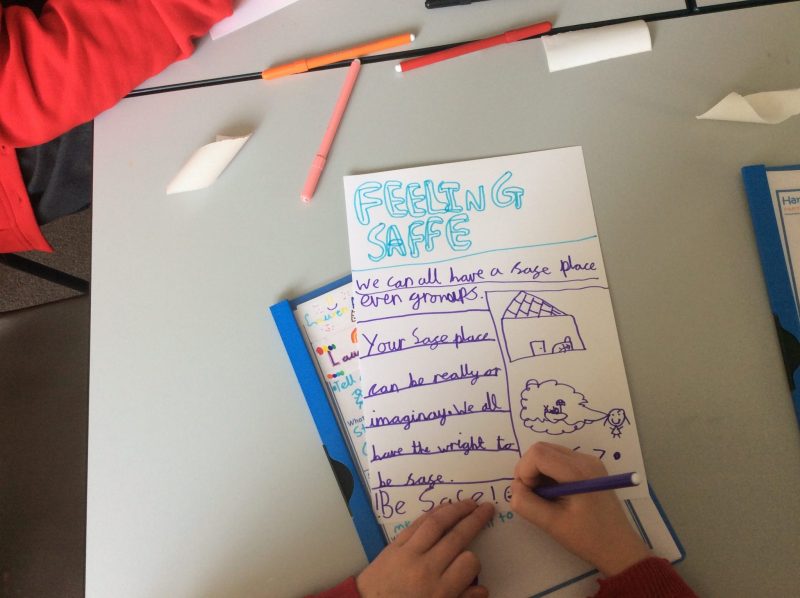 FEELING
SAFFE
We can all have a sage place
even gronups.
Your Sage place
can be really or
imaginay. We all
have the wright to
be sage.
!Be Safe!
Har
Lauren
Lau
Tell
What
to